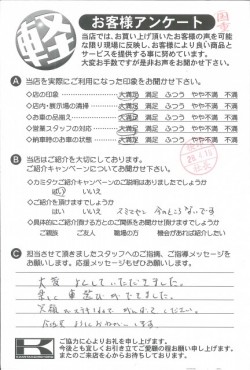 軽
お客様アンケート
当店では、お買い上げ頂いたお客様の声を可能
な限り現場に反映し、お客様により良い商品と
サービスを提供する事に努めています。
大変お手数ですが是非お声をお聞かせ下さい。
A 当店を実際にご利用になった印象をお聞かせ下さい。
◇店の印象 大満足 満足 ふつう やや不満 不満
◇店内・展示場の清掃 大満足 満足 ふつう やや不満 不満
◇お車の品揃え 大満足 満足 ふつう やや不満 不満
◇営業スタッフの対応 大満足 満足 ふつう やや不満 不満
◇納車時のお車の状態 大満足 満足 ふつう やや不満 不満
B 当店はご紹介を大切にしております。
ご紹介キャンペーンについてお聞かせ下さい。
◇カミタケご紹介キャンペーンのご説明はありましたでしょうか
はい いいえ
◇ご紹介を頂けますでしょうか
はい いいえ スミマセン 今のところないです
◇具体的にご紹介頂ける方とのご関係をお聞かせ頂けますでしょうか
ご親族 ご友人 職場の方 機会があれば紹介したい
C 担当させて頂きましたスタッフへのご指摘、ご指導メッセージを
お願いします。応援メッセージもぜひお願いします。
大変 よくしていただきました。
K
ご協力に心よりお礼を申し上げます。
今後とも宜しくお引き立てご愛顧の程お願い申し上げます。
またのご来店を心からお待ちしております。